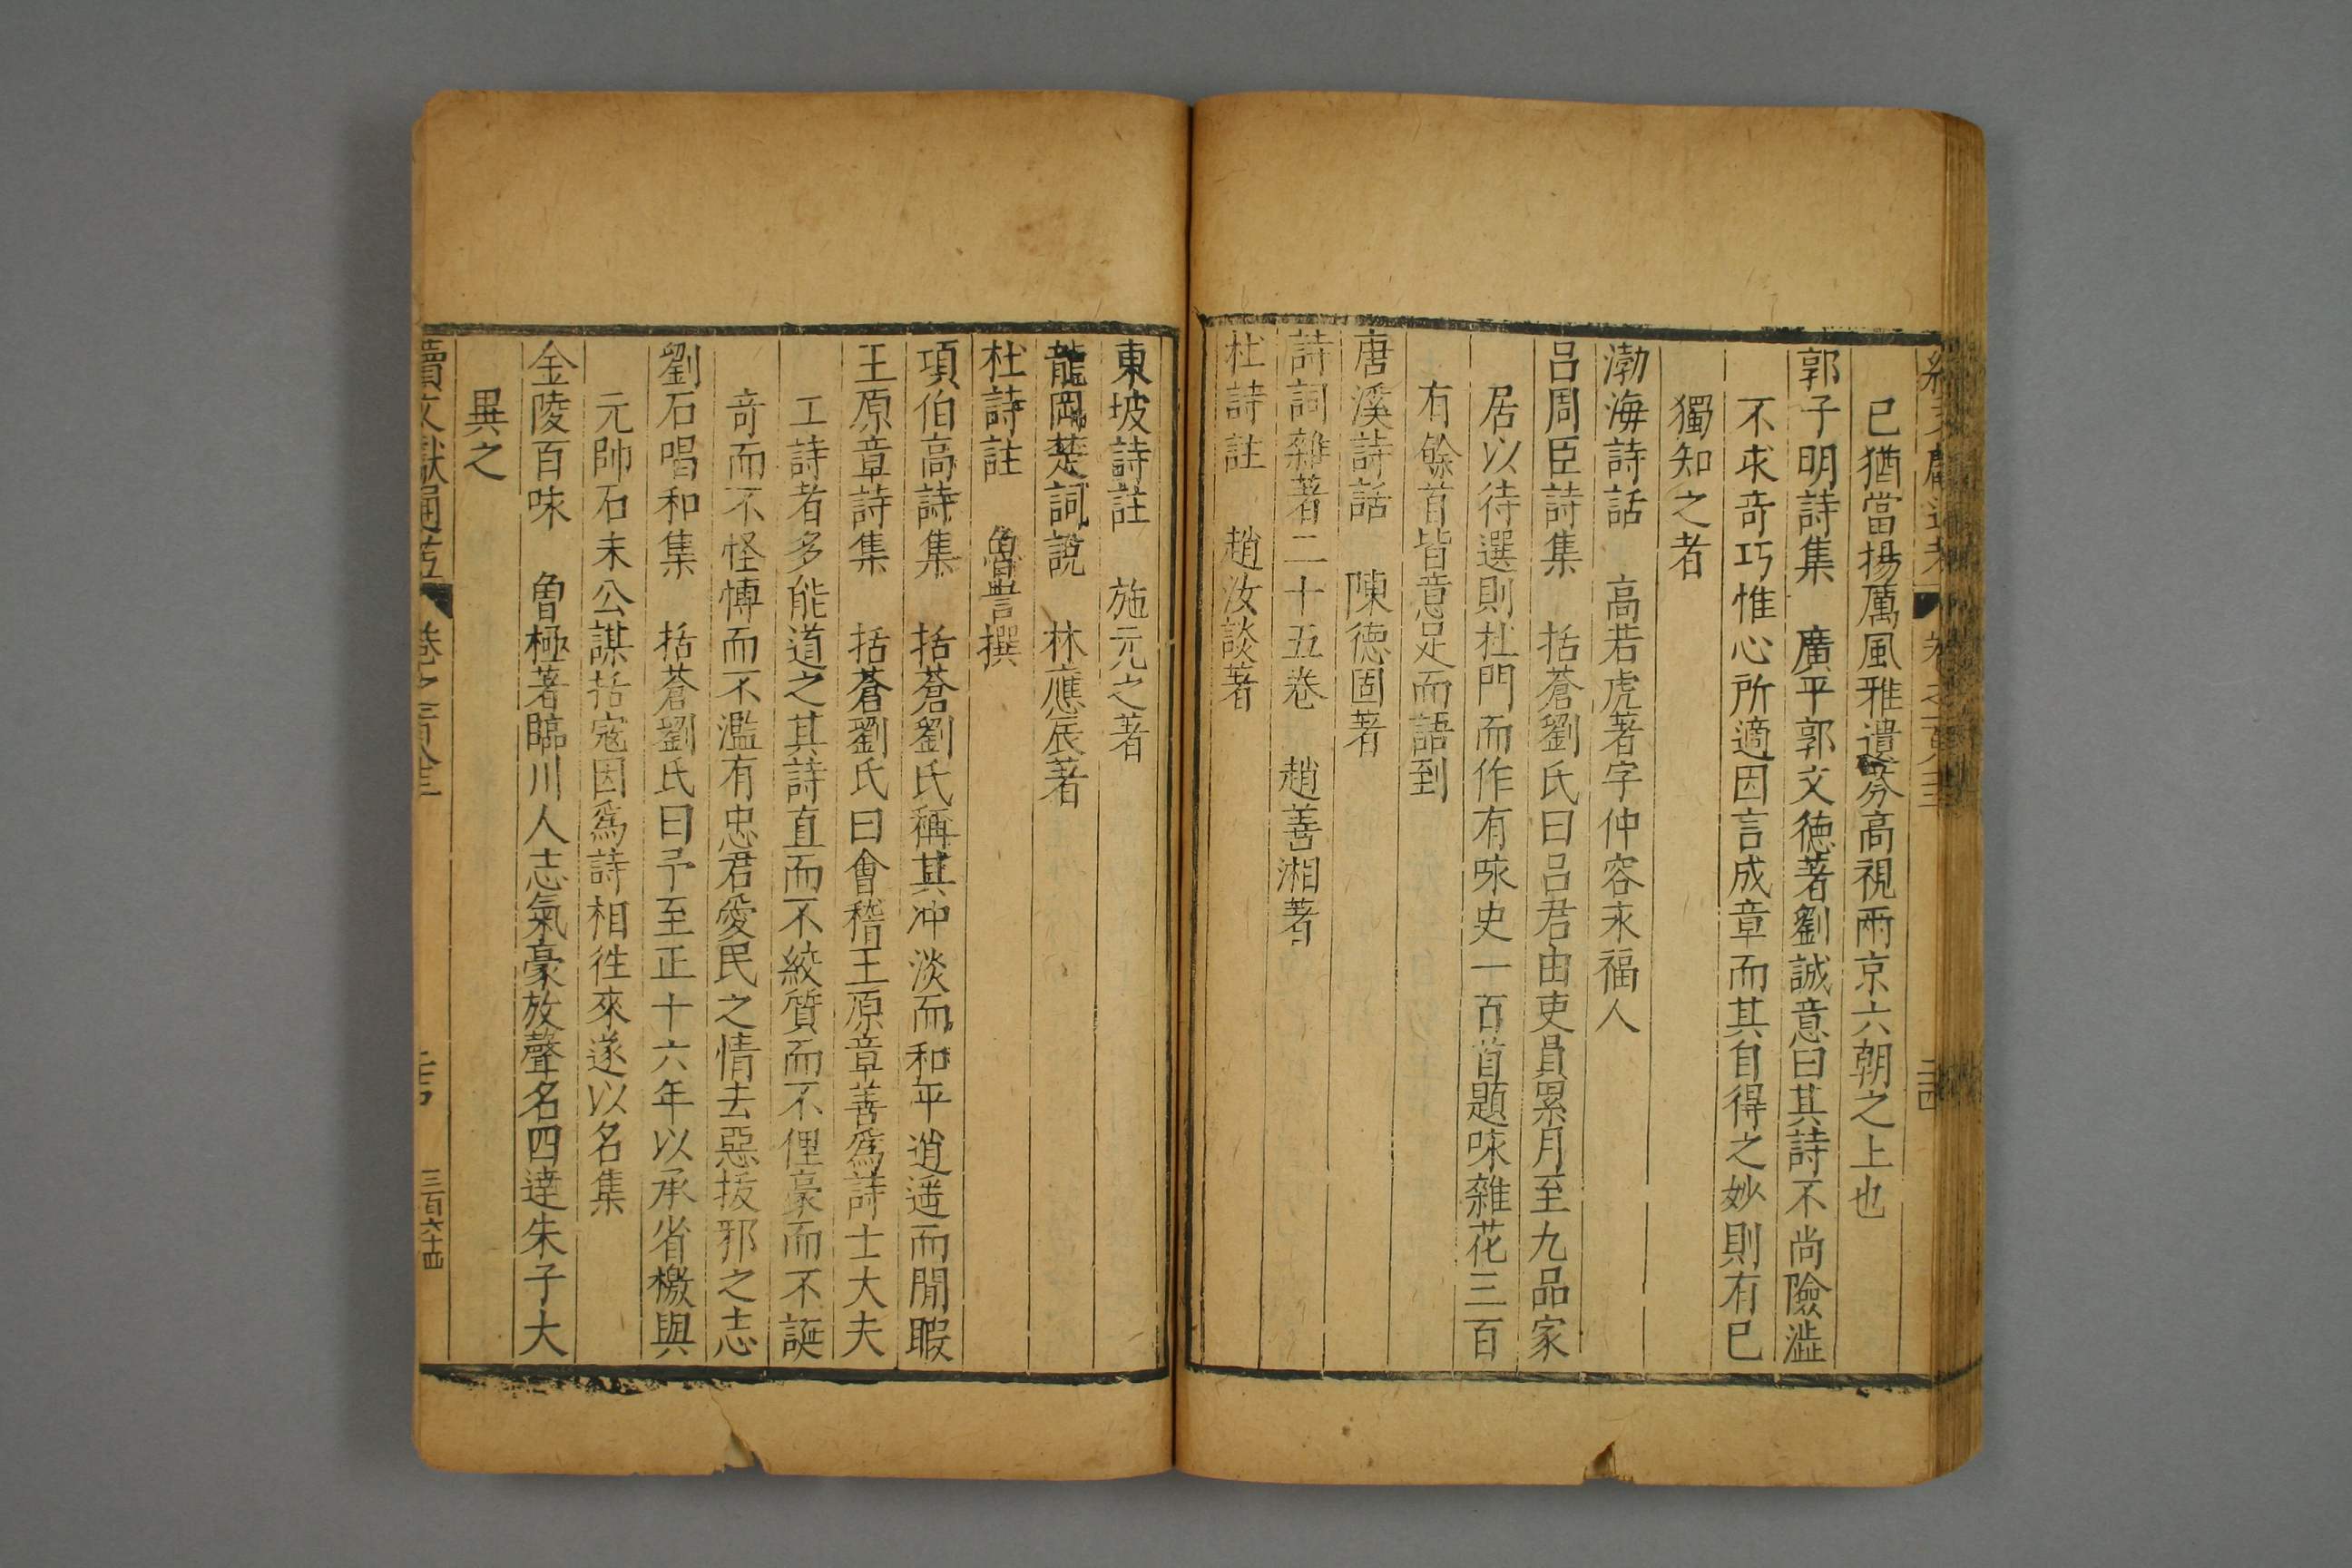 已猶當揚厲風雅遺芬高視兩京六朝之上也
郭子明詩集　廣平郭文德著劉誠意曰其詩不尚險澁
不求竒巧惟心所適因言成章而其自得之妙則有已
獨知之者
渤海詩話　高若虎著字仲容永福人
呂周臣詩集　括蒼劉氏曰呂君由吏員累月至九品家
居以待選則杜門而作有咏史一百首題咏雜花三百
有餘首皆意足而語到
唐溪詩話　陳德固著
詩詞雜著二十五卷　趙善湘著
杜詩註　趙汝談著
東坡詩註　施元之著
龍岡楚詞說　林應辰著
杜詩註　魯訔撰
項伯高詩集　括蒼劉氏稱其冲淡而和平逍遥而閒暇
王原章詩集　括蒼劉氏曰會稽王原章善爲詩士大夫
工詩者多能道之其詩直而不絞質而不俚豪而不誕
竒而不怪愽而不濫有忠君愛民之情去惡拔邪之志
劉石唱和集　括蒼劉氏曰予至正十六年以承省檄與
元帥石末公謀括寇因爲詩相徃來遂以名集
金陵百咏　曾極著臨川人志氣豪放聲名四達朱子大
異之
續文獻通考　卷之一百八十三　二十四　三百六十四